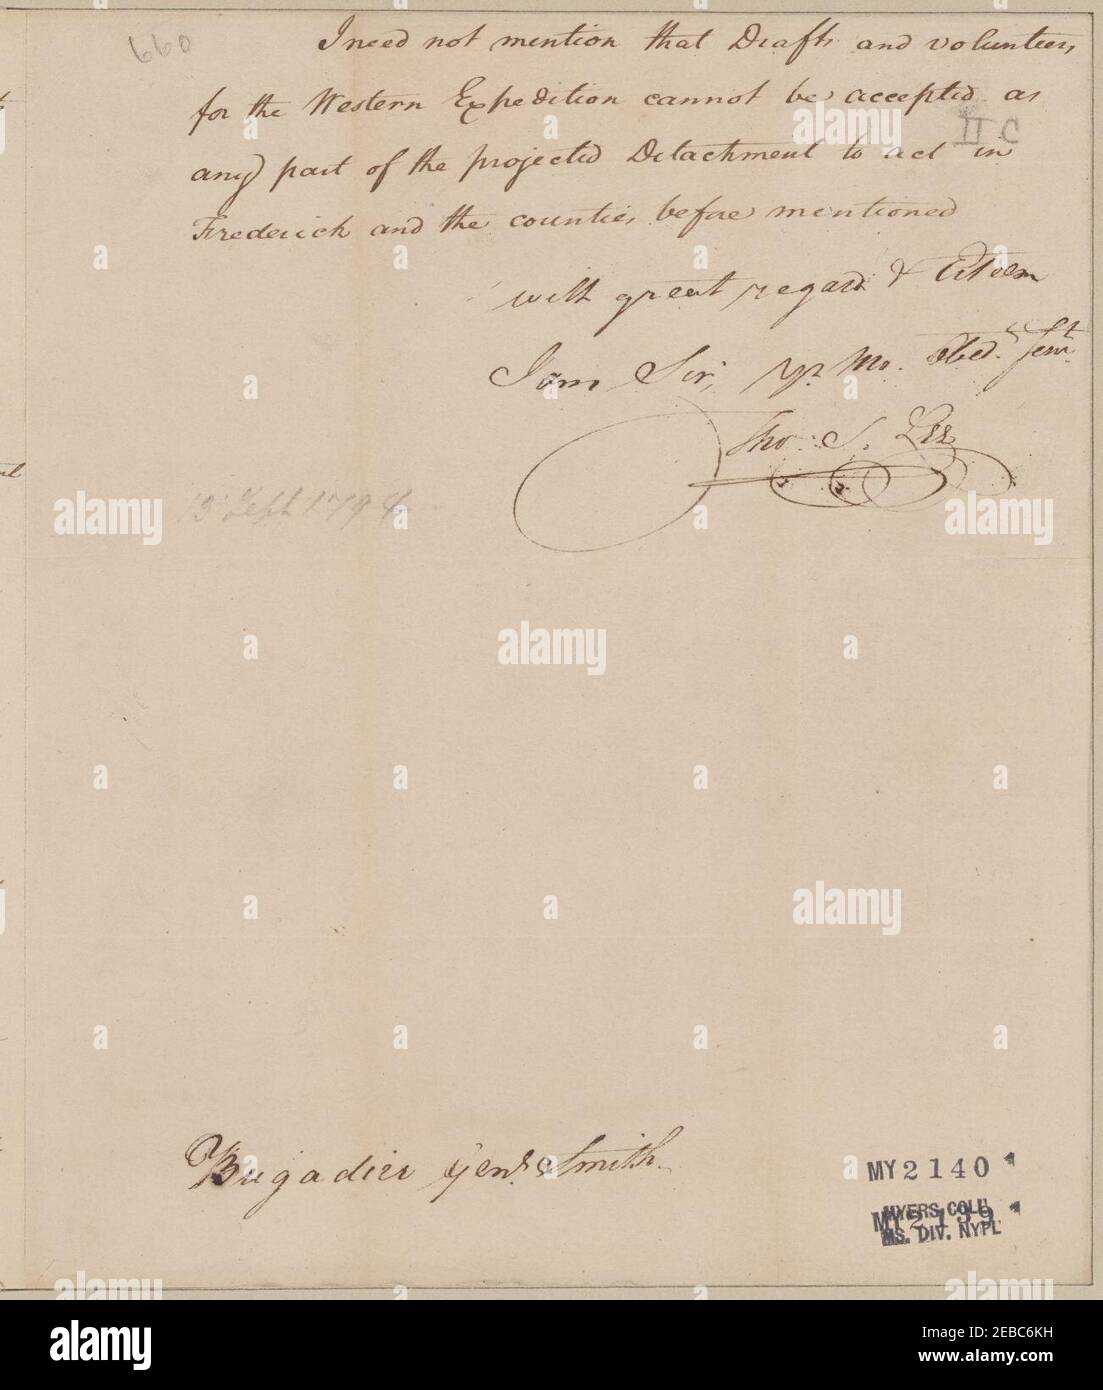 660
I need not mention that Drafts and volunteers
for the Western Expedition cannot be accepted as
II C
any part of the projected Detachment to act in
Frederick and the counties before mentioned
with great regard & Esteem
I am Sir, Yr Mo. Obed. Servt
Tho. S. Lee
13 Sept 1794
Brigadier Genl. Smith
MY 2140
MY 2139
MYERS COLL
MS. DIV. NYPL
alamy
Image ID: 2EBC6KH
www.alamy.com